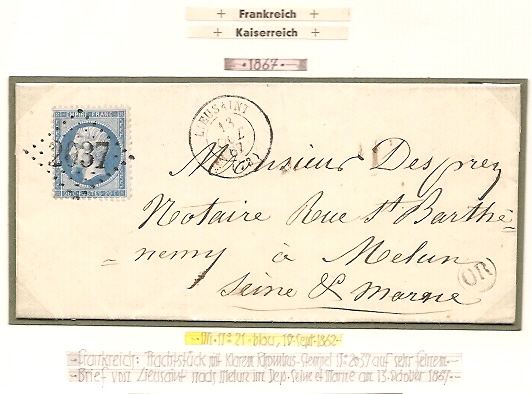 + Frankreich +
+ Kaiserreich +
·1867·
EMPIRE FRANC
2037
LIEUSAINT
13
67
Monsieur Desprez
Notaire Rue St Barthé=
=nemy à Melun
Seine & Marne
OR
Mi. N° 21 - blau, Sept. 1862
Frankreich: Prachtstück mit klarem Stempel N° 2037 auf sehr
Brief von Lieusaint nach Melun im Dep. Seine et Marne am 13. October 1867.